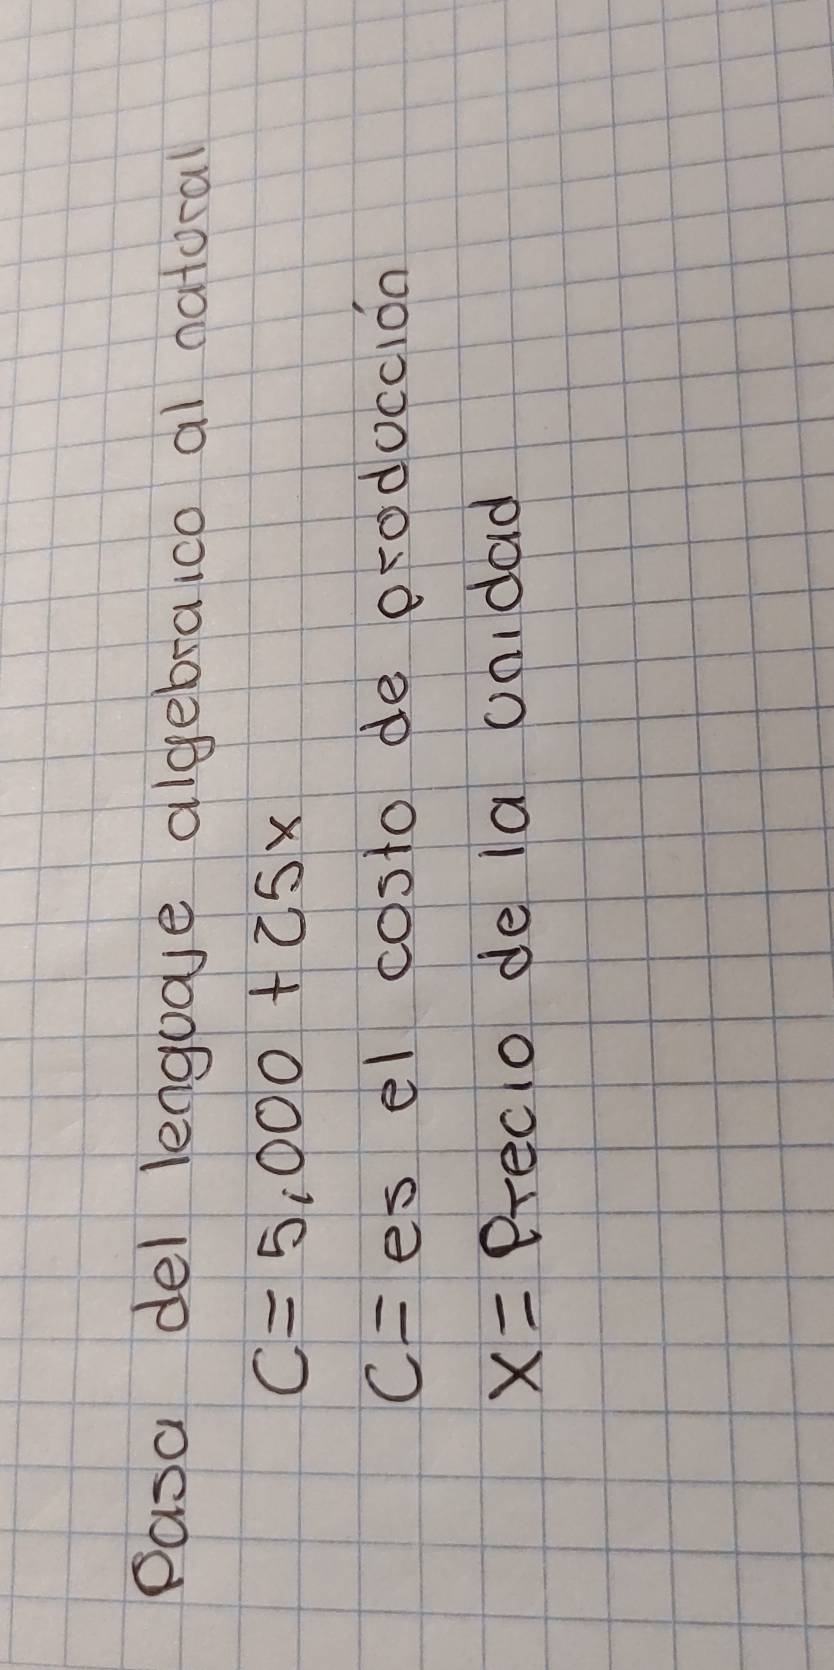 Pasa del lenguaje algebraico al natural
C = 5,000 + 25x
C = es el costo de producción
X = Precio de la unidad